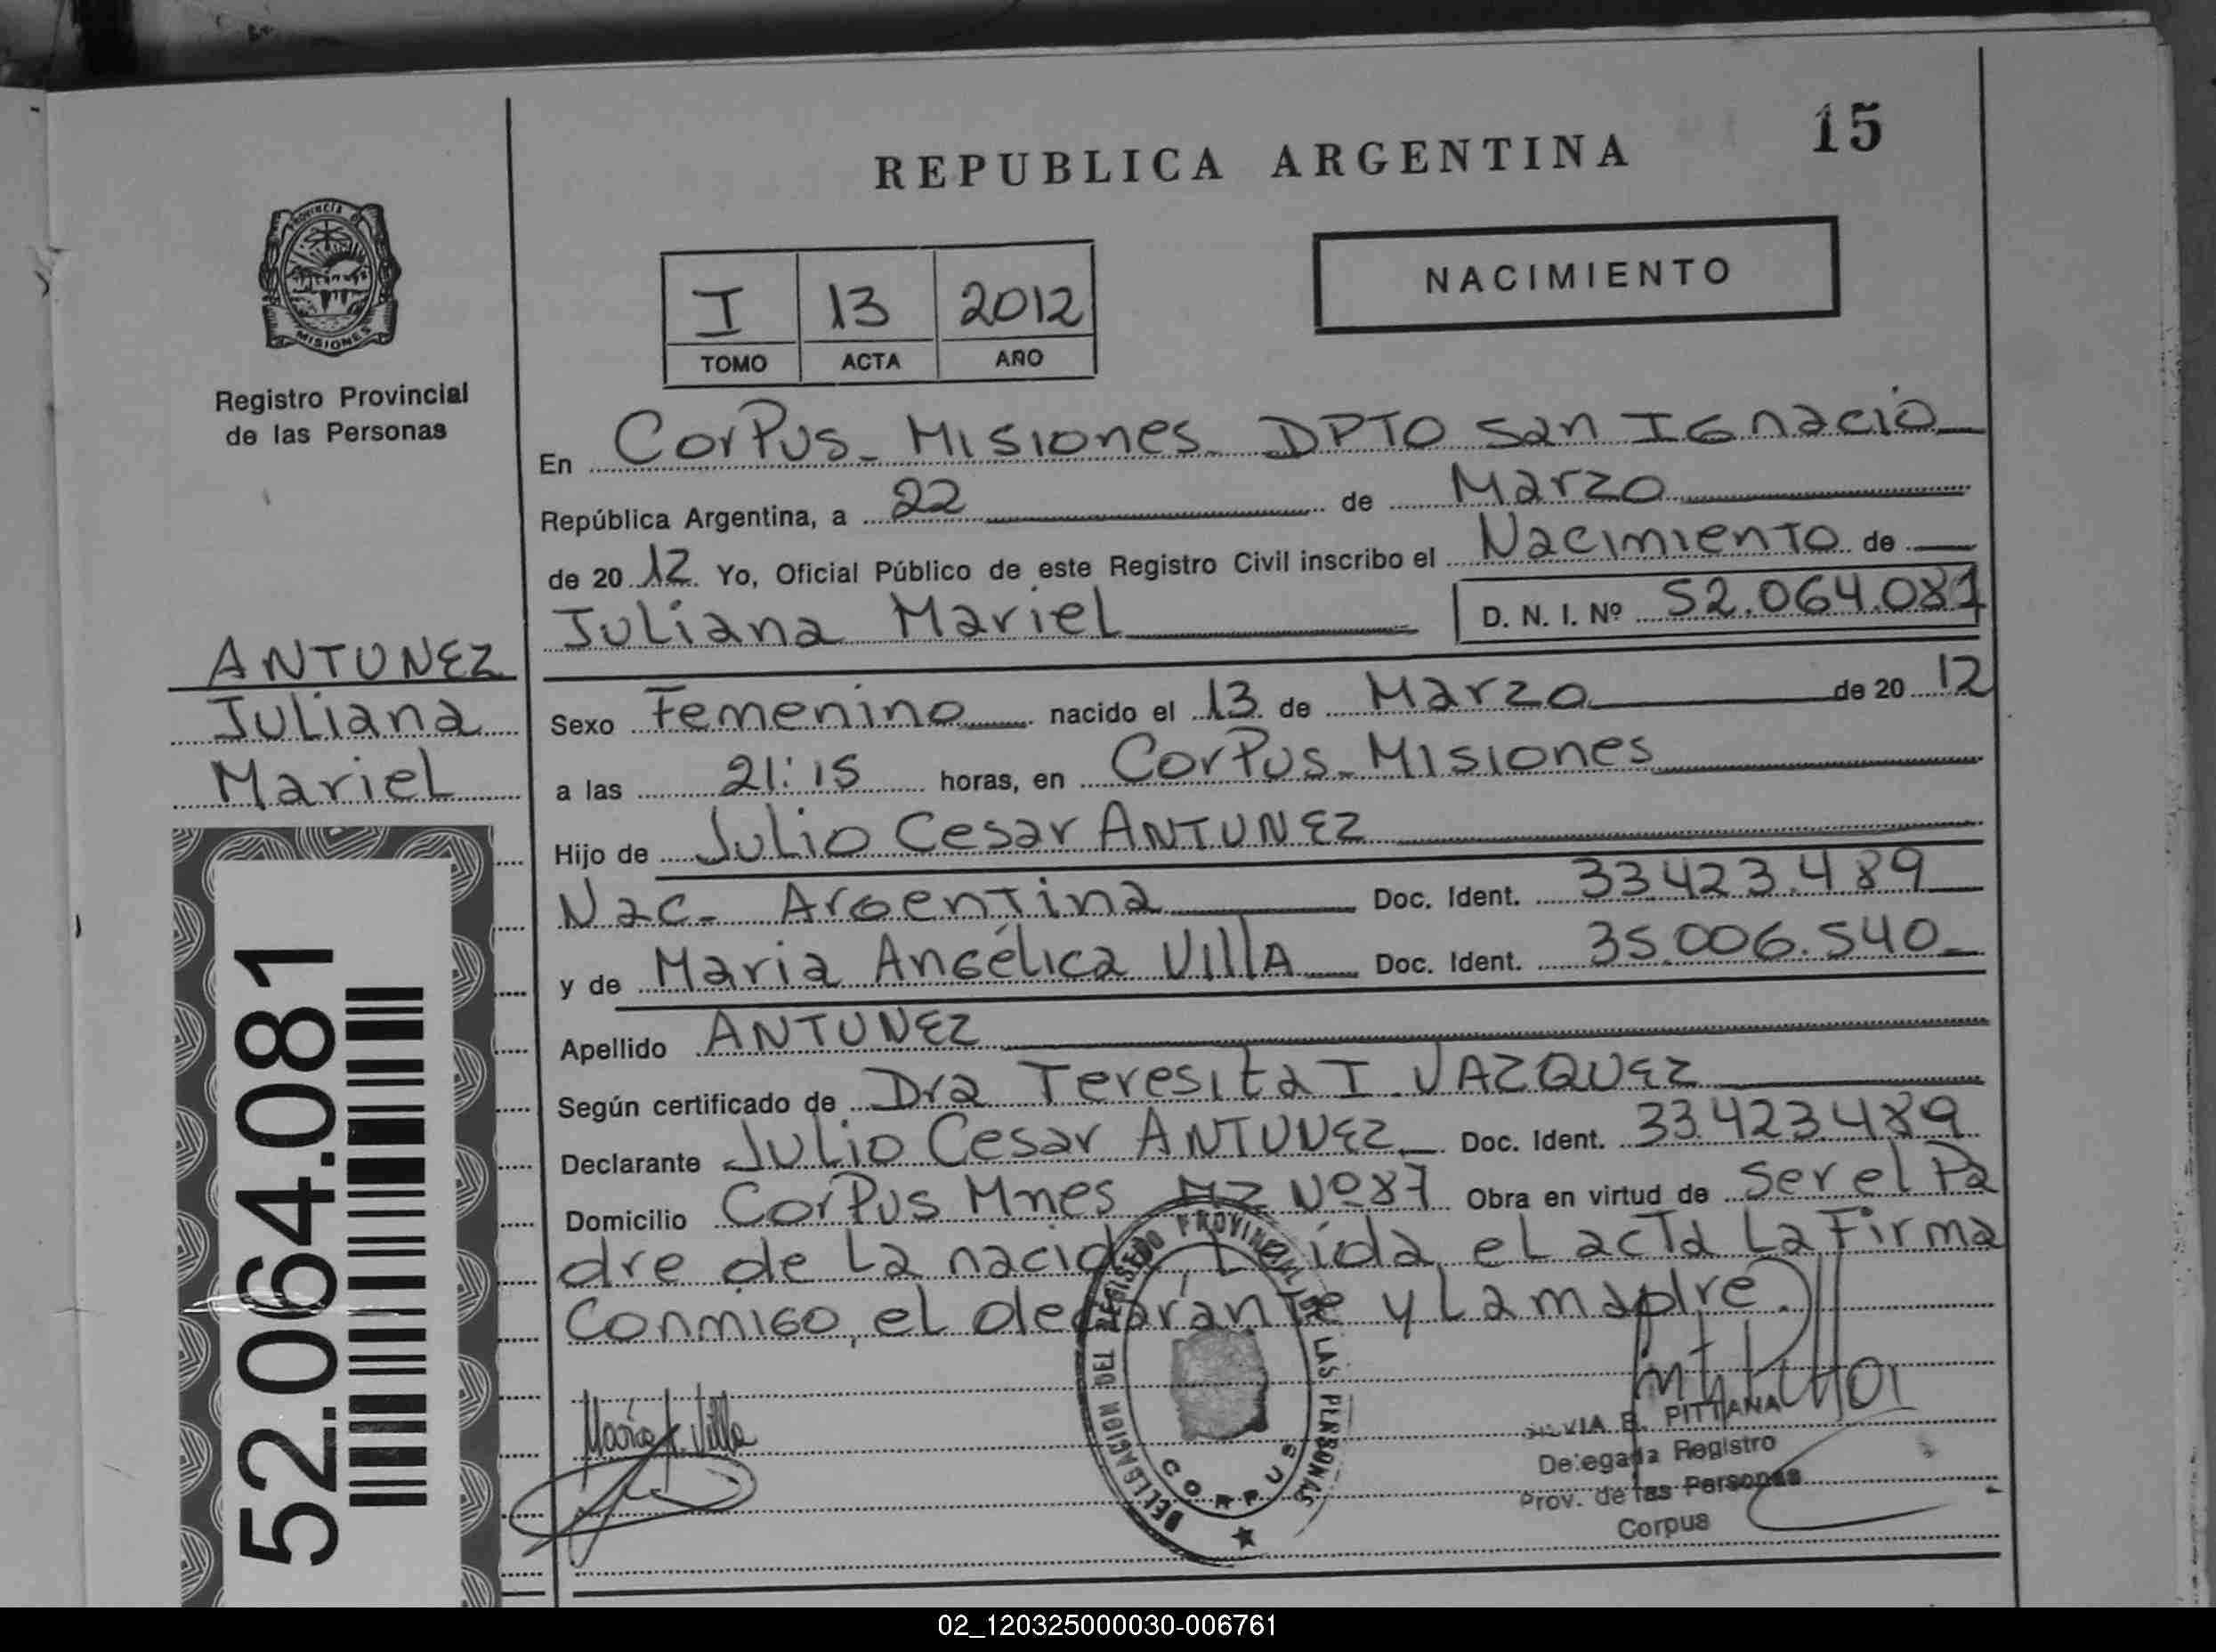 15
REPUBLICA ARGENTINA
PROVINCIA DE
MISIONES
Registro Provincial
de las Personas
NACIMIENTO
I 13 2012
TOMO ACTA AÑO
En Corpus - Misiones - DPTO San Ignacio
República Argentina, a 22 de Marzo
de 2012 Yo, Oficial Público de este Registro Civil inscribo el Nacimiento de
Juliana Mariel D. N. I. Nº 52.064.081
ANTUNEZ
Juliana
Mariel
Sexo Femenino nacido el 13 de Marzo de 2012
a las 21:15 horas, en Corpus - Misiones
Hijo de Julio Cesar ANTUNEZ
Nac - Argentina Doc. Ident. 33.423.489
y de Maria Angélica VillA Doc. Ident. 35.006.540
Apellido ANTUNEZ
Según certificado de Dra Teresita I. VAZQUEZ
Declarante Julio Cesar ANTUNEZ Doc. Ident. 33.423.489
Domicilio Corpus Mnes MZ Nº 87 Obra en virtud de Ser el Pa
dre de La nacida, Leída el acta La Firma
Conmigo, el declarante y La madre.
52.064.081
María A. Villa
DELEGACION DEL REGISTRO PROVINCIAL DE LAS PERSONAS
CORPUS
SILVIA E. PITTANA
Delegada Registro
Prov. de las Personas
Corpus
02_120325000030-006761